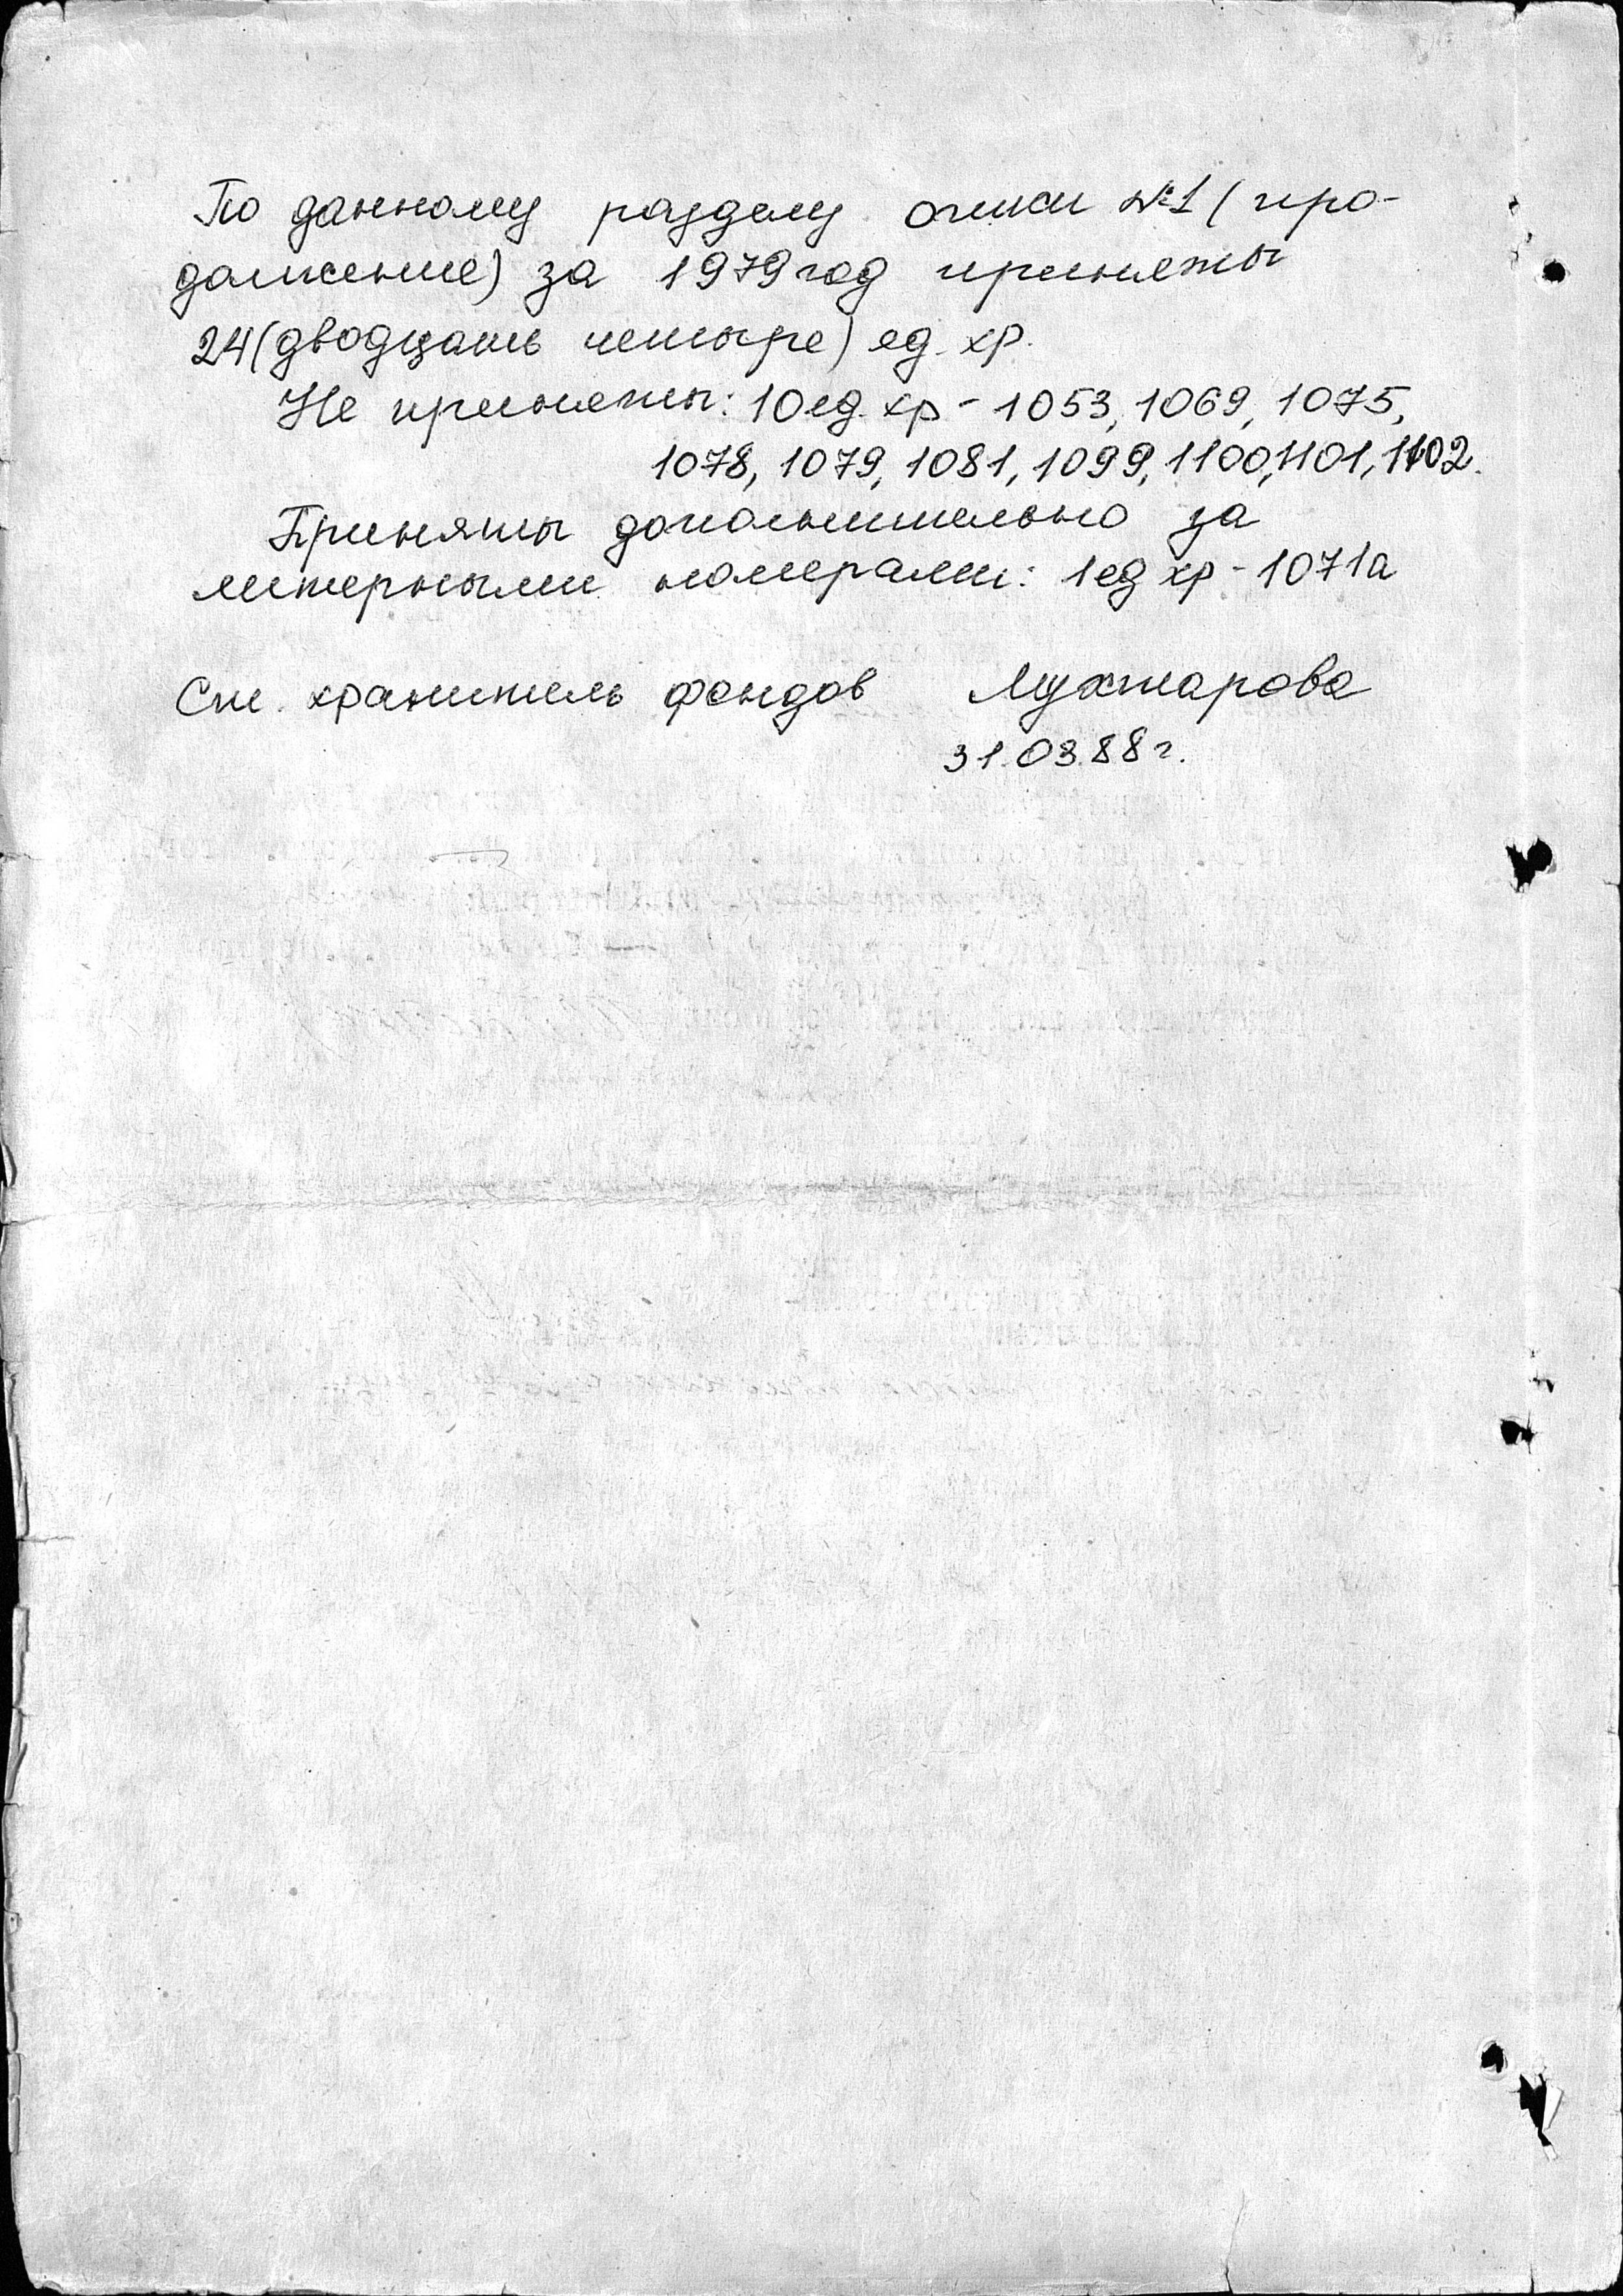 По данному разделу описи №1 (про-
должение) за 1979 год приняты
24 (двадцать четыре) ед. хр.
Не приняты: 10 ед. хр - 1053, 1069, 1075,
1078, 1079, 1081, 1099, 1100, 1101, 1102.
Приняты дополнительно за
литерными номерами: 1 ед хр - 1071а
Ст. хранитель фондов Мухтарова
31.03.88 г.